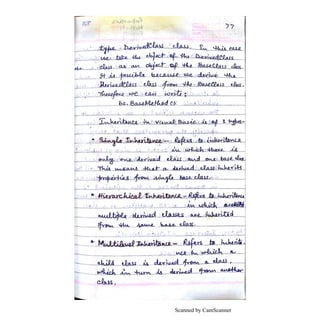 77
type DerivedClass class. In this case
we take the object of the DerivedClass
class as an object of the BaseClass class.
It is possible because we derive the
DerivedClass class from the BaseClass class.
Therefore we can write:
bc.BaseMethod()
Inheritance in Visual Basic is of 3 types-
* Single Inheritance - Refers to inheritance
in which there is
only one derived class and one base class.
This means that a derived class inherits
properties from single base class.
* Hierarchical Inheritance - Refers to inheritance
in which
multiple derived classes are inherited
from the same base class.
* Multilevel Inheritance - Refers to inherita-
nce in which a
child class is derived from a class,
which in turn is derived from another
class.
Scanned by CamScanner